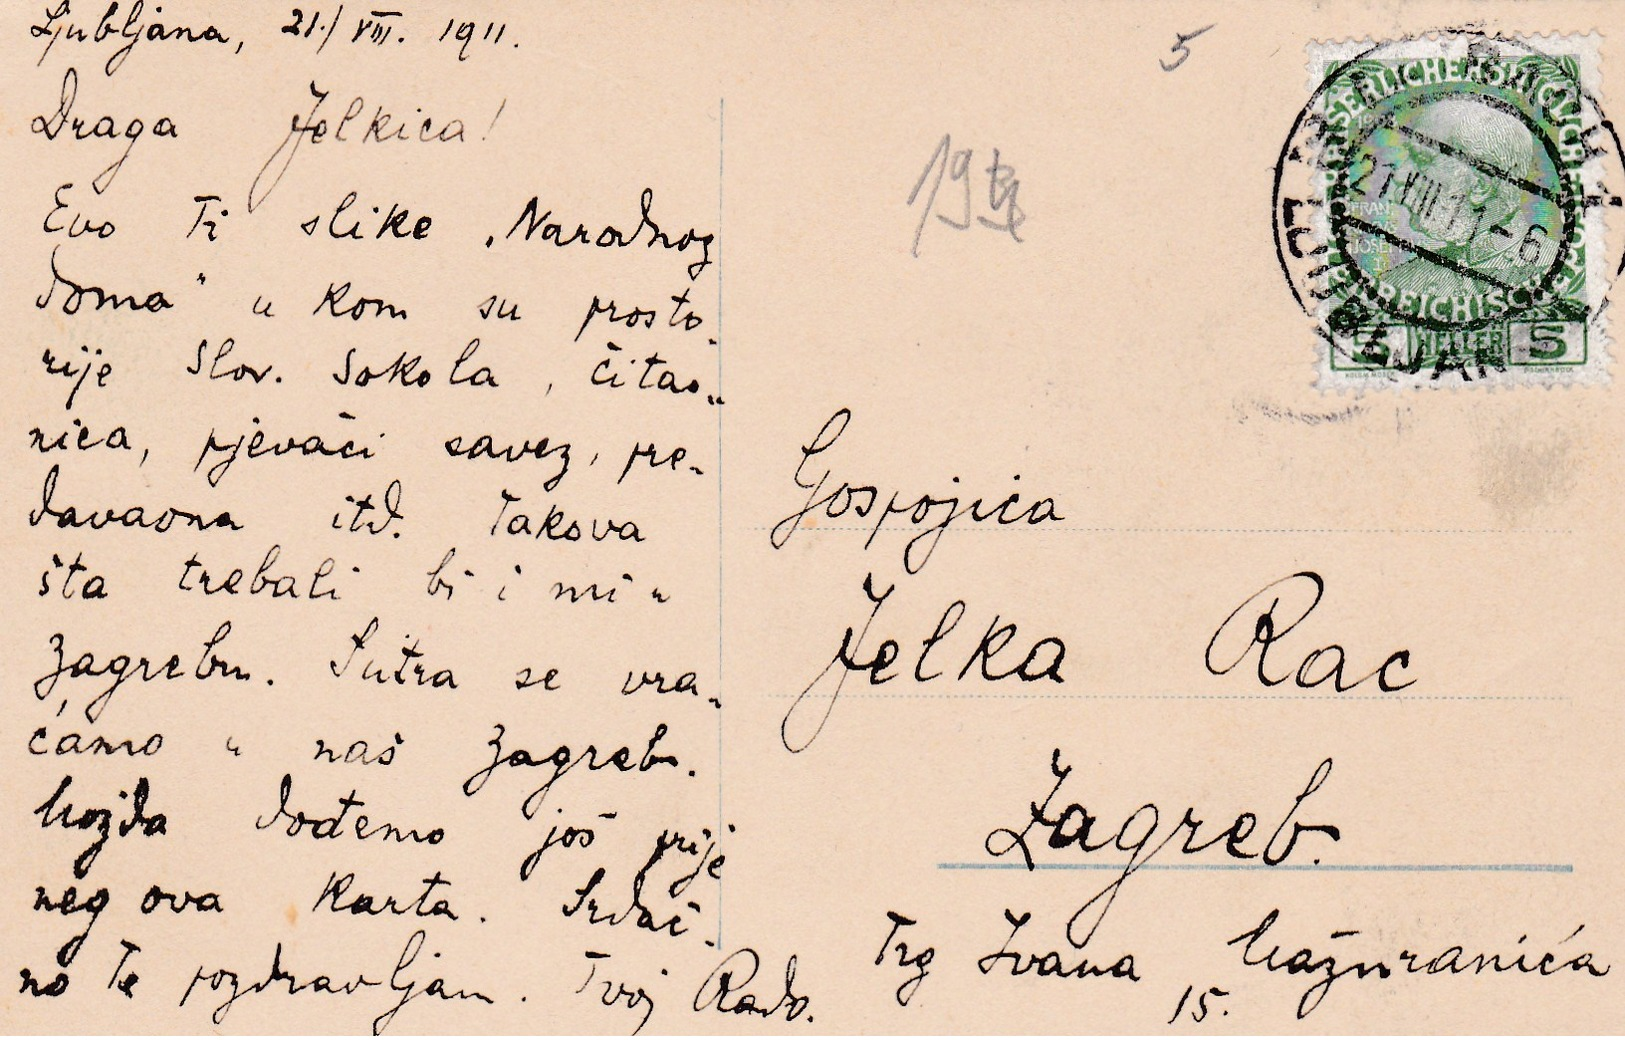 Ljubljana, 21./VIII. 1911.
Draga Jelkica!
Evo Ti slike „Narodnog
doma" u kom su prosto-
rije Slov. Sokola, čitao-
nica, pjevači savez, pre-
davaona itd. Takova
šta trebali bi i mi u
Zagrebu. Sutra se vra-
ćamo u naš Zagreb.
Možda dođemo još prije
neg ova karta. Srdač-
no Te pozdravljam. Tvoj Rado.
5
19
KAISERLICHE KÖNIGLICHE
ÖSTERREICHISCHE
FRANZ
JOSEF
I
5 HELLER 5
21 VIII 11-6
Gospojica
Jelka Rac
Zagreb.
Trg Ivana Mažuranića
15.